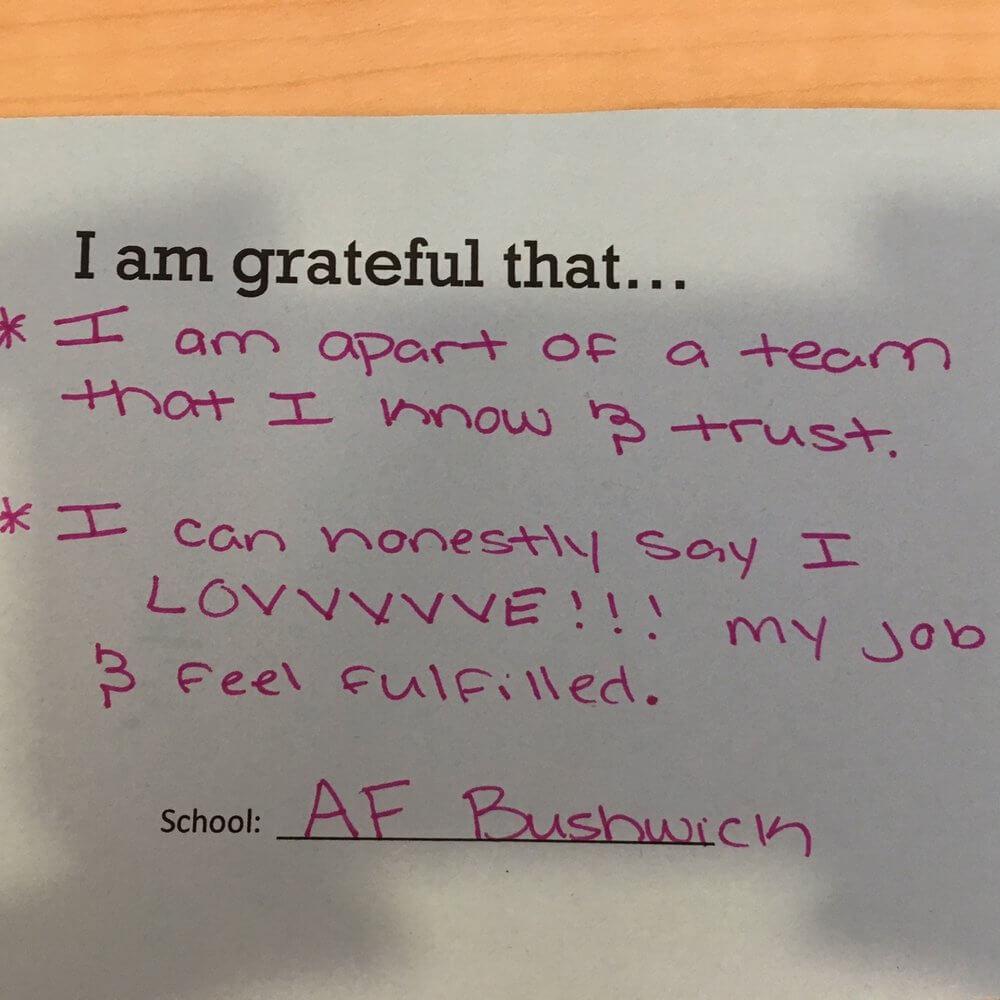 I am grateful that...
* I am apart of a team
that I know & trust.
* I can honestly say I
LOVVVVVVE!!! my job
& feel fulfilled.
School: AF Bushwick